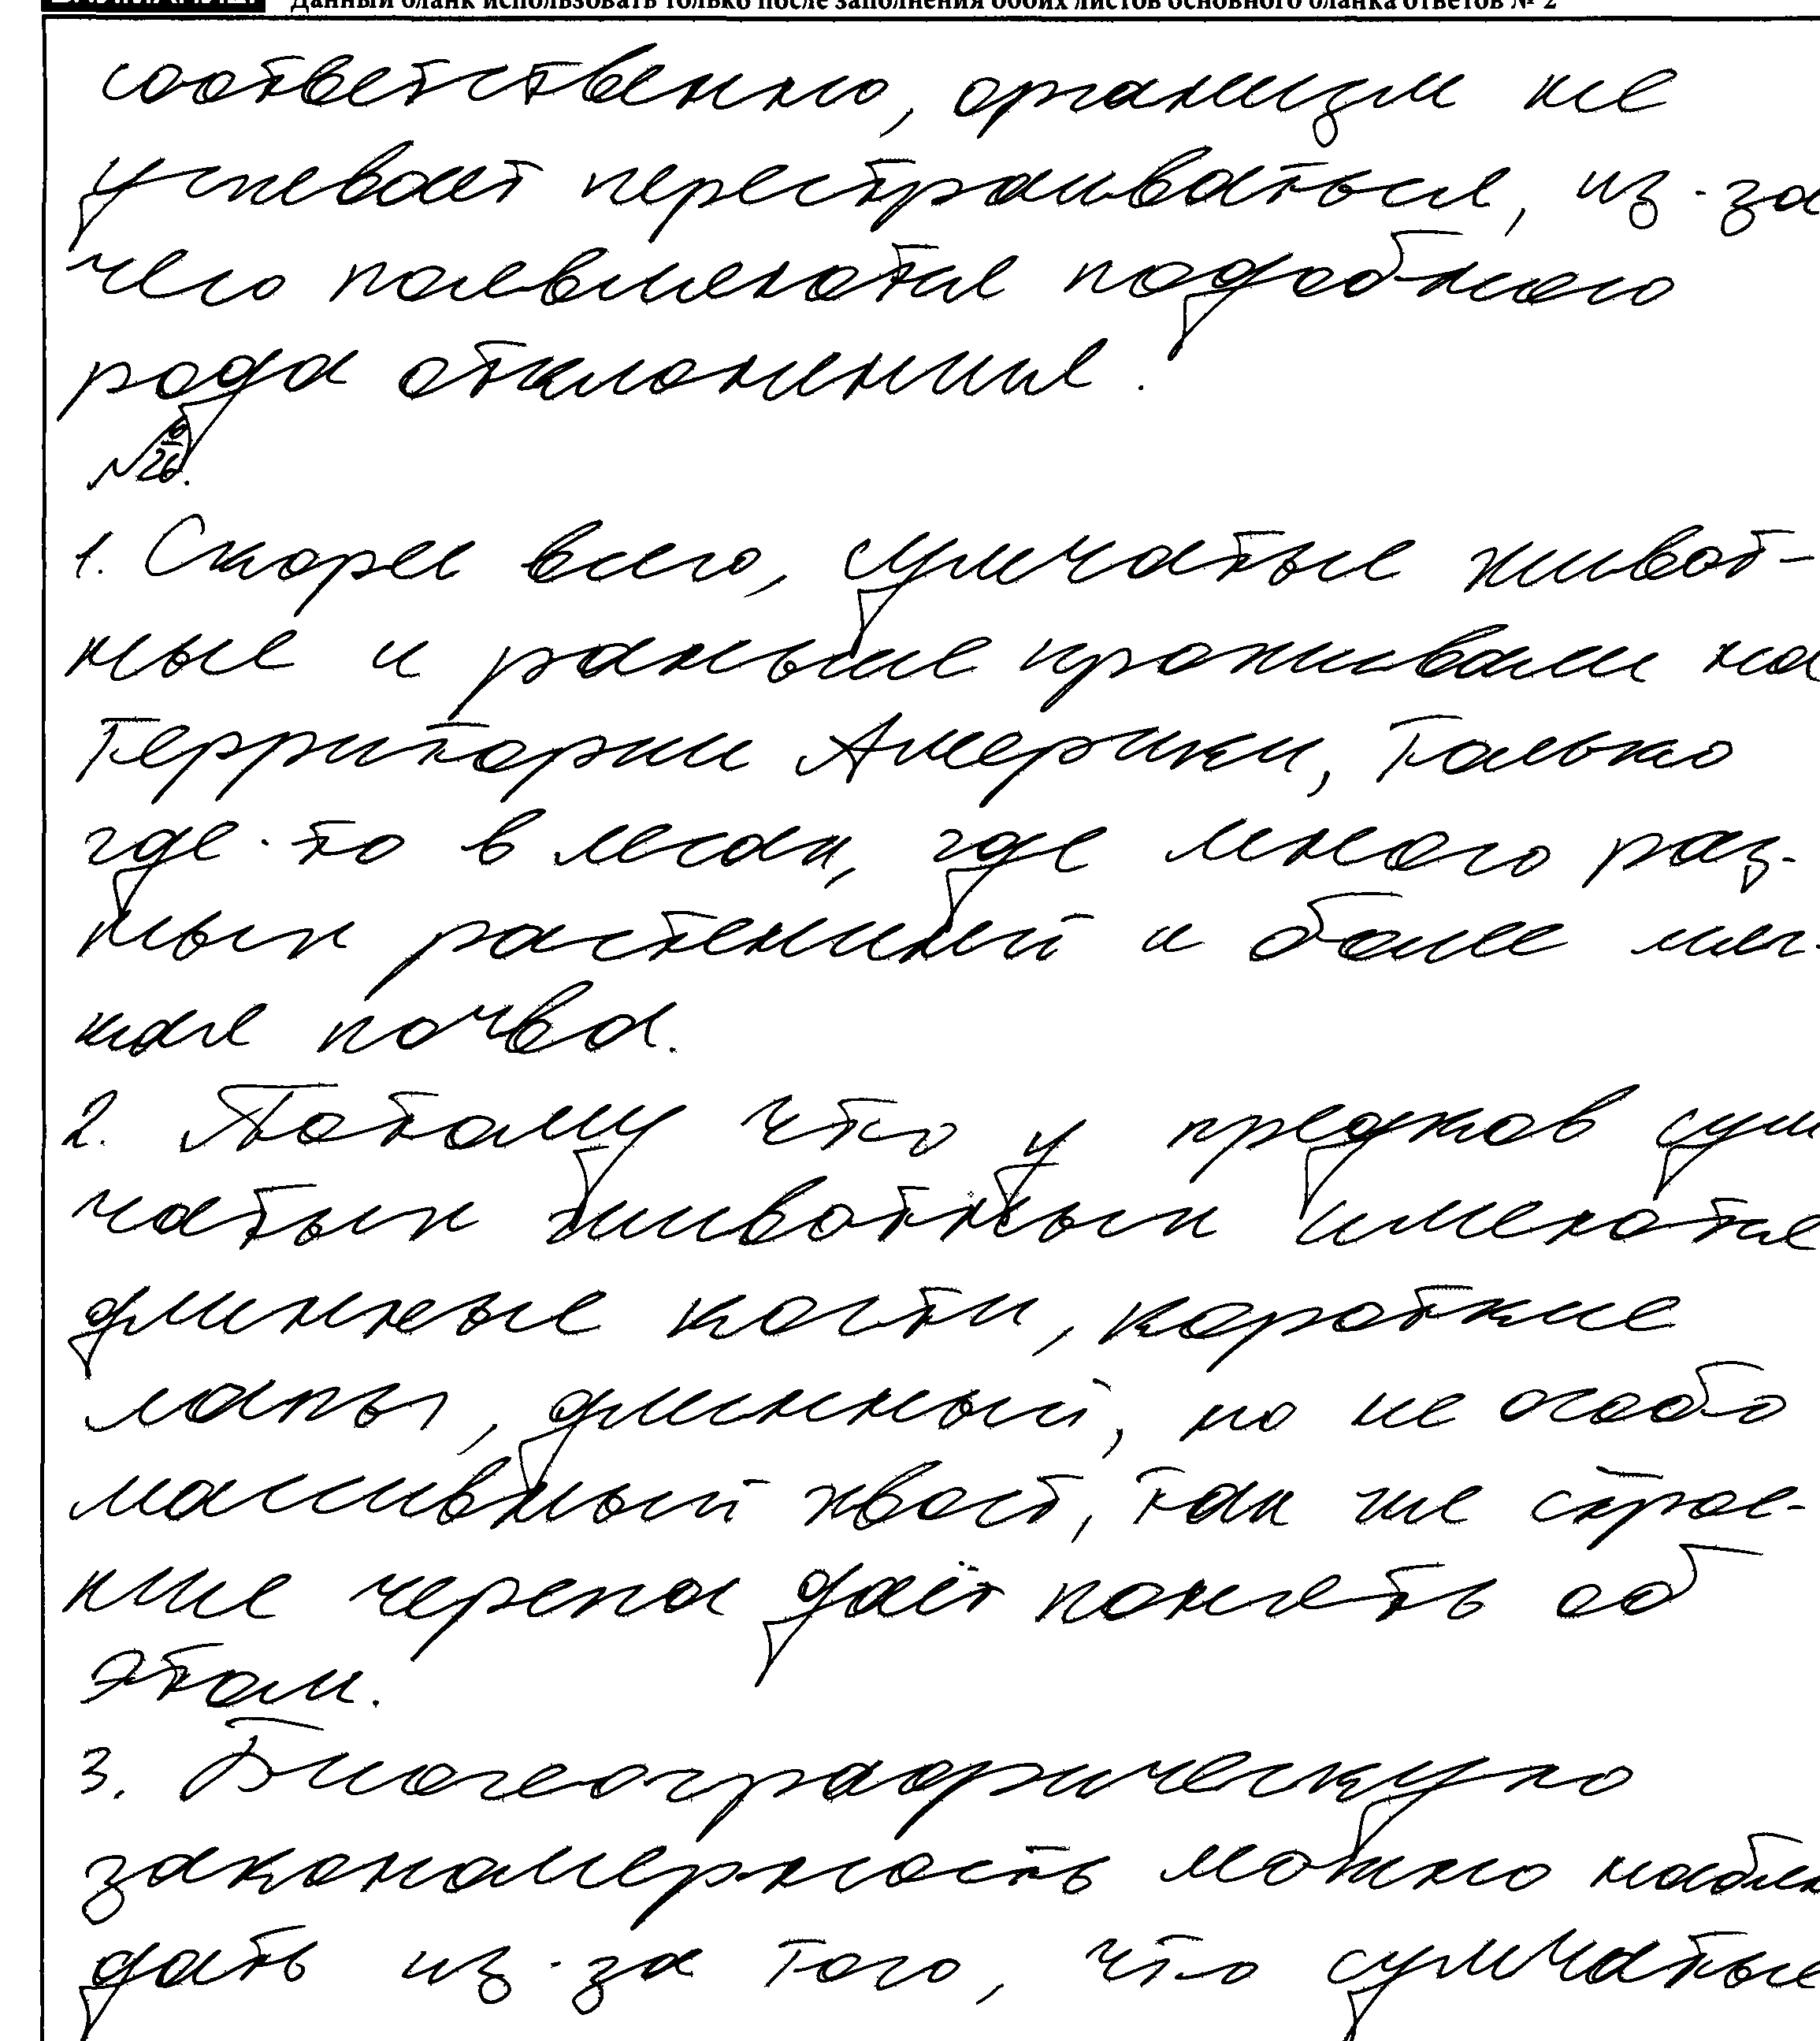 Данный бланк использовать только после заполнения обоих листов основного бланка ответов № 2
соответственно, организм не
успевает перестраиваться, из-за
чего появляются подобного
рода отклонения.
№26.
1. Скорее всего, сумчатые живот-
ные и раньше проживали на
территории Америки, только
где-то в лесах, где много раз-
ных растений и более мяг-
кая почва.
2. Потому что у предков сум
чатых животных имеются
длинные кости, короткие
лапы, длинный, но не особо
массивный хвост, так же строе-
ние черепа даёт понять об
этом.
3. Биогеографическую
закономерность можно наблю
дать из-за того, что сумчатые